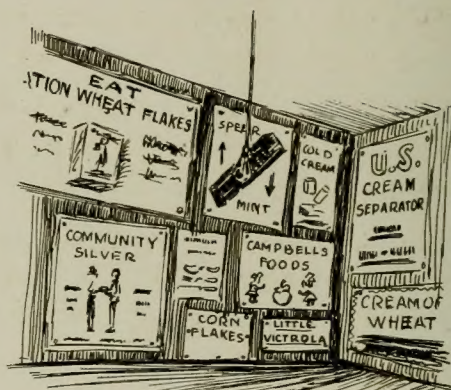 EAT
TION WHEAT FLAKES
SPEAR
MINT
COLD
CREAM
U.S.
CREAM
SEPARATOR
COMMUNITY
SILVER
CAMPBELLS
FOODS
CORN
FLAKES
LITTLE
VICTROLA
CREAM OF
WHEAT